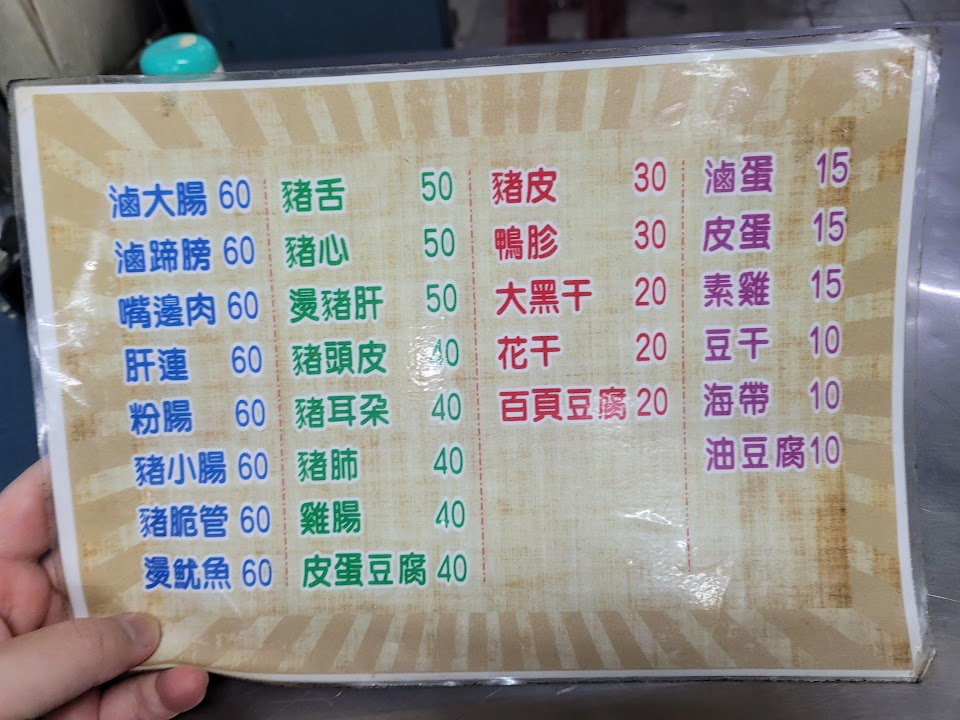 滷大腸 60
滷蹄膀 60
嘴邊肉 60
肝連 60
粉腸 60
豬小腸 60
豬脆管 60
燙魷魚 60
豬舌 50
豬心 50
燙豬肝 50
豬頭皮 40
豬耳朶 40
豬肺 40
雞腸 40
皮蛋豆腐 40
豬皮 30
鴨胗 30
大黑干 20
花干 20
百頁豆腐 20
滷蛋 15
皮蛋 15
素雞 15
豆干 10
海帶 10
油豆腐 10